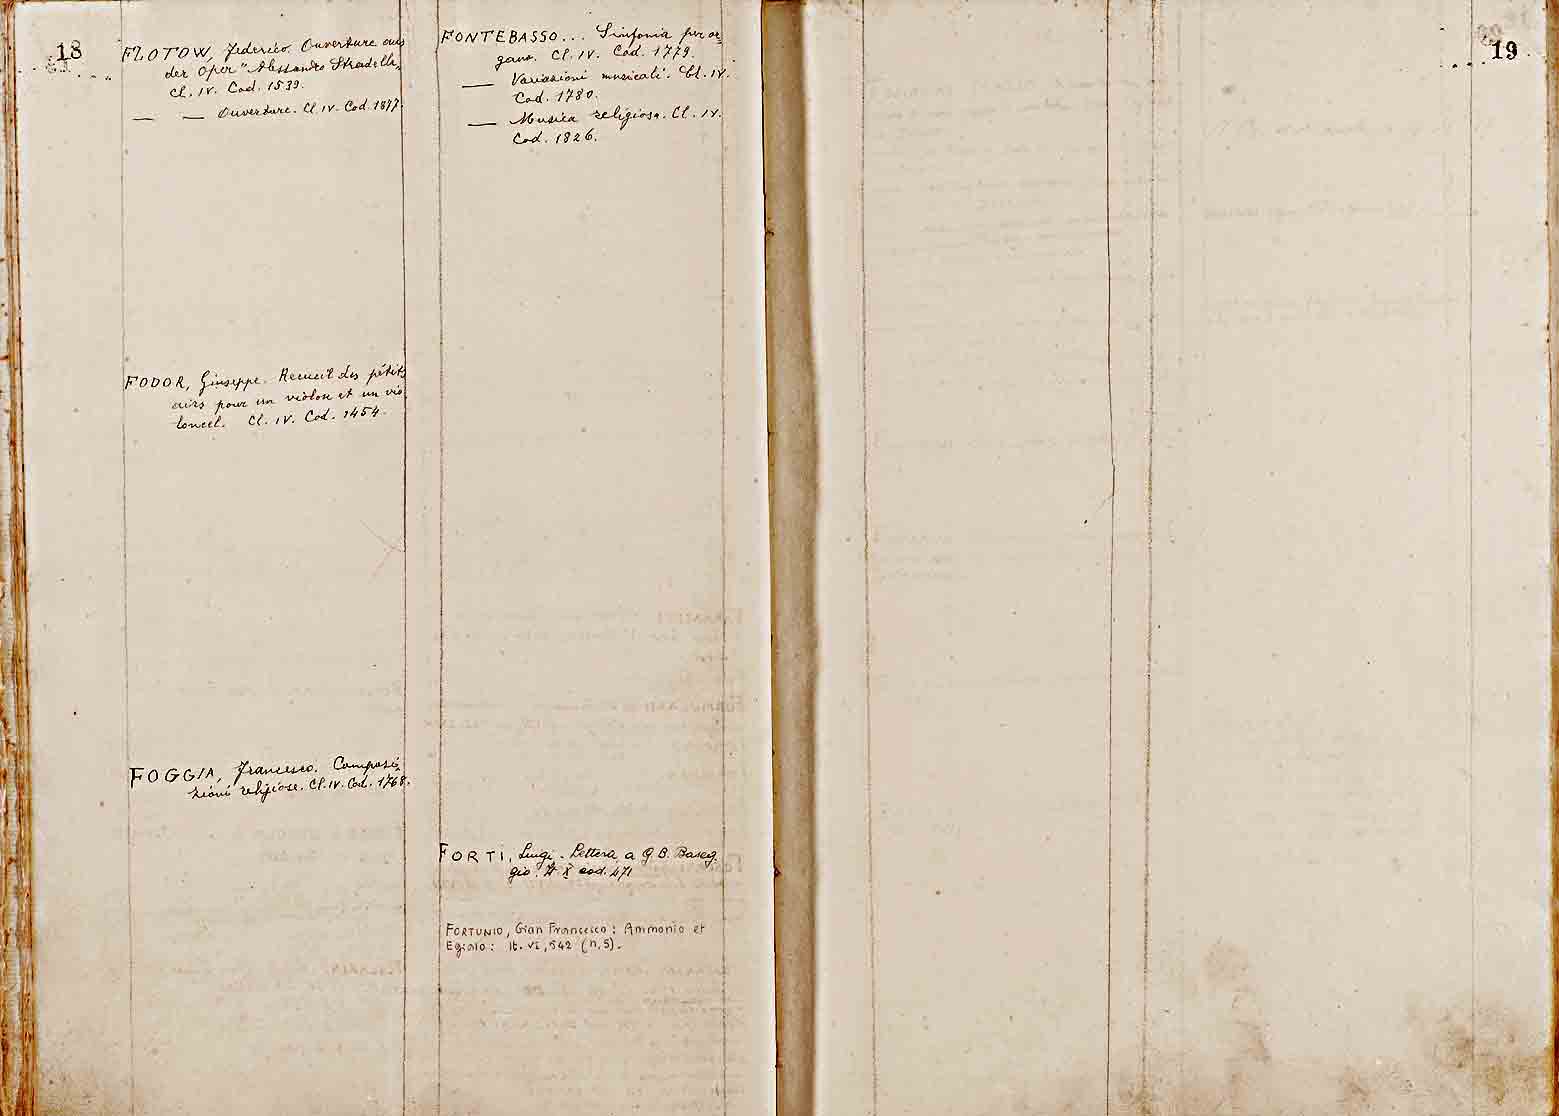 18
FLOTOW, Federico. Ouverture aus
der Oper "Alessandro Stradella„
Cl. IV. Cod. 1539.
— — Ouverture. Cl. IV. Cod. 1877.
FODOR, Giuseppe. Recueil des pétits
airs pour un violon et un vio
loncel. Cl. IV. Cod. 1454.
FOGGIA, Francesco. Composi-
zioni religiose. Cl. IV. Cod. 1768.
FONTEBASSO... Sinfonia per or-
gano. Cl. IV. Cod. 1779.
— Variazioni musicali. Cl. IV.
Cod. 1780.
— Musica religiosa. Cl. IV.
Cod. 1826.
FORTI, Luigi. Lettera a G B. Baseg
gio. It. X cod. 471
FORTUNIO, Gian Francesco: Ammonio et
Egialo: It. VI, 542 (n. 5).
19